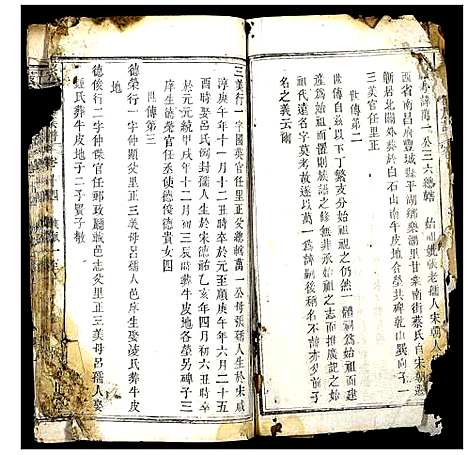 始祖諱萬一公三六總幹
西省南昌府豐城縣平湖鄉梁湖里甘棠南街蔡氏自宋
蘄居北關外葬於白石山南牛皮地合塋共碑乾山巽向子一
三美官任里正
世傳第二
世傳始祖自一以下丁繁支分始祖祖之仍然一體祠為始祖
產為始祖而置則族譜之修又承始祖之志而推廣始
祖代遠名字莫考故遂以萬一為諱嗣後稱名不
名之義云爾
三美行一字國英官任里正父總幹萬一公母張孺人生於宋咸
淳庚午年十一月十二日戌時歿於元至順庚午年六月二十五
酉時娶呂氏例封孺人生於宋德祐乙亥年四月初六丑時卒
於元元統初一癸酉年三月初三辰時葬牛皮地各塋另碑子三
庠生德榮官任丞使德俊德貴女四
世傳第三
德榮行一字仲顯父里正三美母呂孺人邑庠生娶凌氏葬牛皮
地
德俊行二字仲傑官任郵政廳祗邑志父里正三美母呂孺人娶
鍾氏葬牛皮地子二子賢子敬